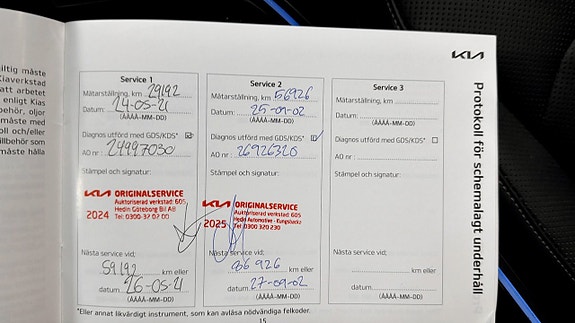 iltig måste
Kiaverkstad
att arbetet
enligt Kias
behör, oljor
måste med
oll och/eller
tillbehör som
måste hålla
KIA
Protokoll för schemalagt underhåll
Service 1
Mätarställning, km 29192
Datum: 24-05-21
(ÅÅÅÅ-MM-DD)
Diagnos utförd med GDS/KDS*
AO nr: 24997030
Stämpel och signatur:
KIA ORIGINALSERVICE
Auktoriserad verkstad: 605
2024 Hedin Göteborg Bil AB
Tel: 0300-32 02 00
Nästa service vid;
59192 km eller
datum 26-05-21
(ÅÅÅÅ-MM-DD)
Service 2
Mätarställning, km 56926
Datum: 25-09-02
(ÅÅÅÅ-MM-DD)
Diagnos utförd med GDS/KDS*
AO nr: 26926320
Stämpel och signatur:
KIA ORIGINALSERVICE
Auktoriserad verkstad: 605
2025 Hedin Automotive - Kungsbacka
Tel: 0300 320 230
Nästa service vid;
86926 km eller
datum 27-09-02
(ÅÅÅÅ-MM-DD)
Service 3
Mätarställning, km
Datum:
(ÅÅÅÅ-MM-DD)
Diagnos utförd med GDS/KDS*
AO nr:
Stämpel och signatur:
Nästa service vid;
km eller
datum
(ÅÅÅÅ-MM-DD)
*Eller annat likvärdigt instrument, som kan avläsa nödvändiga felkoder.
15